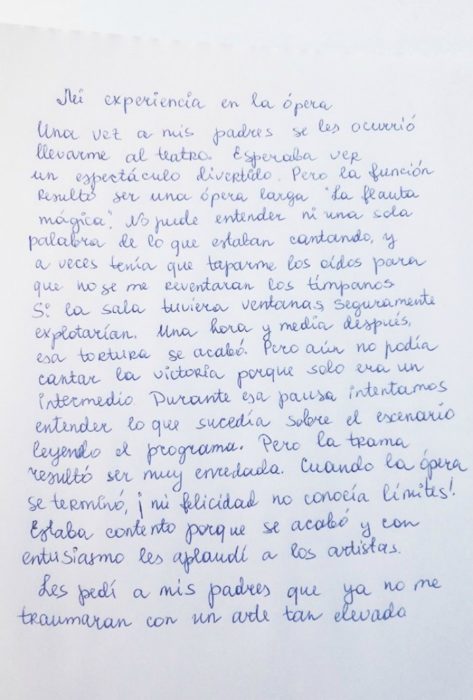 Mi experiencia en la ópera
Una vez a mis padres se les ocurrió
llevarme al teatro. Esperaba ver
un espectáculo divertido. Pero la función
resultó ser una ópera larga "La flauta
mágica". No pude entender ni una sola
palabra de lo que estaban cantando, y
a veces tenía que taparme los oídos para
que no se me reventaran los tímpanos
Si la sala tuviera ventanas, seguramente
explotarían. Una hora y media después,
esa tortura se acabó. Pero aún no podía
cantar la victoria porque solo era un
intermedio Durante esa pausa intentamos
entender lo que sucedía sobre el escenario
leyendo el programa. Pero la trama
resultó ser muy enredada. Cuando la ópera
se terminó, ¡mi felicidad no conocía límites!
Estaba contento porque se acabó y con
entusiasmo les aplaudí a los artistas.
Les pedí a mis padres que ya no me
traumaran con un arte tan elevado